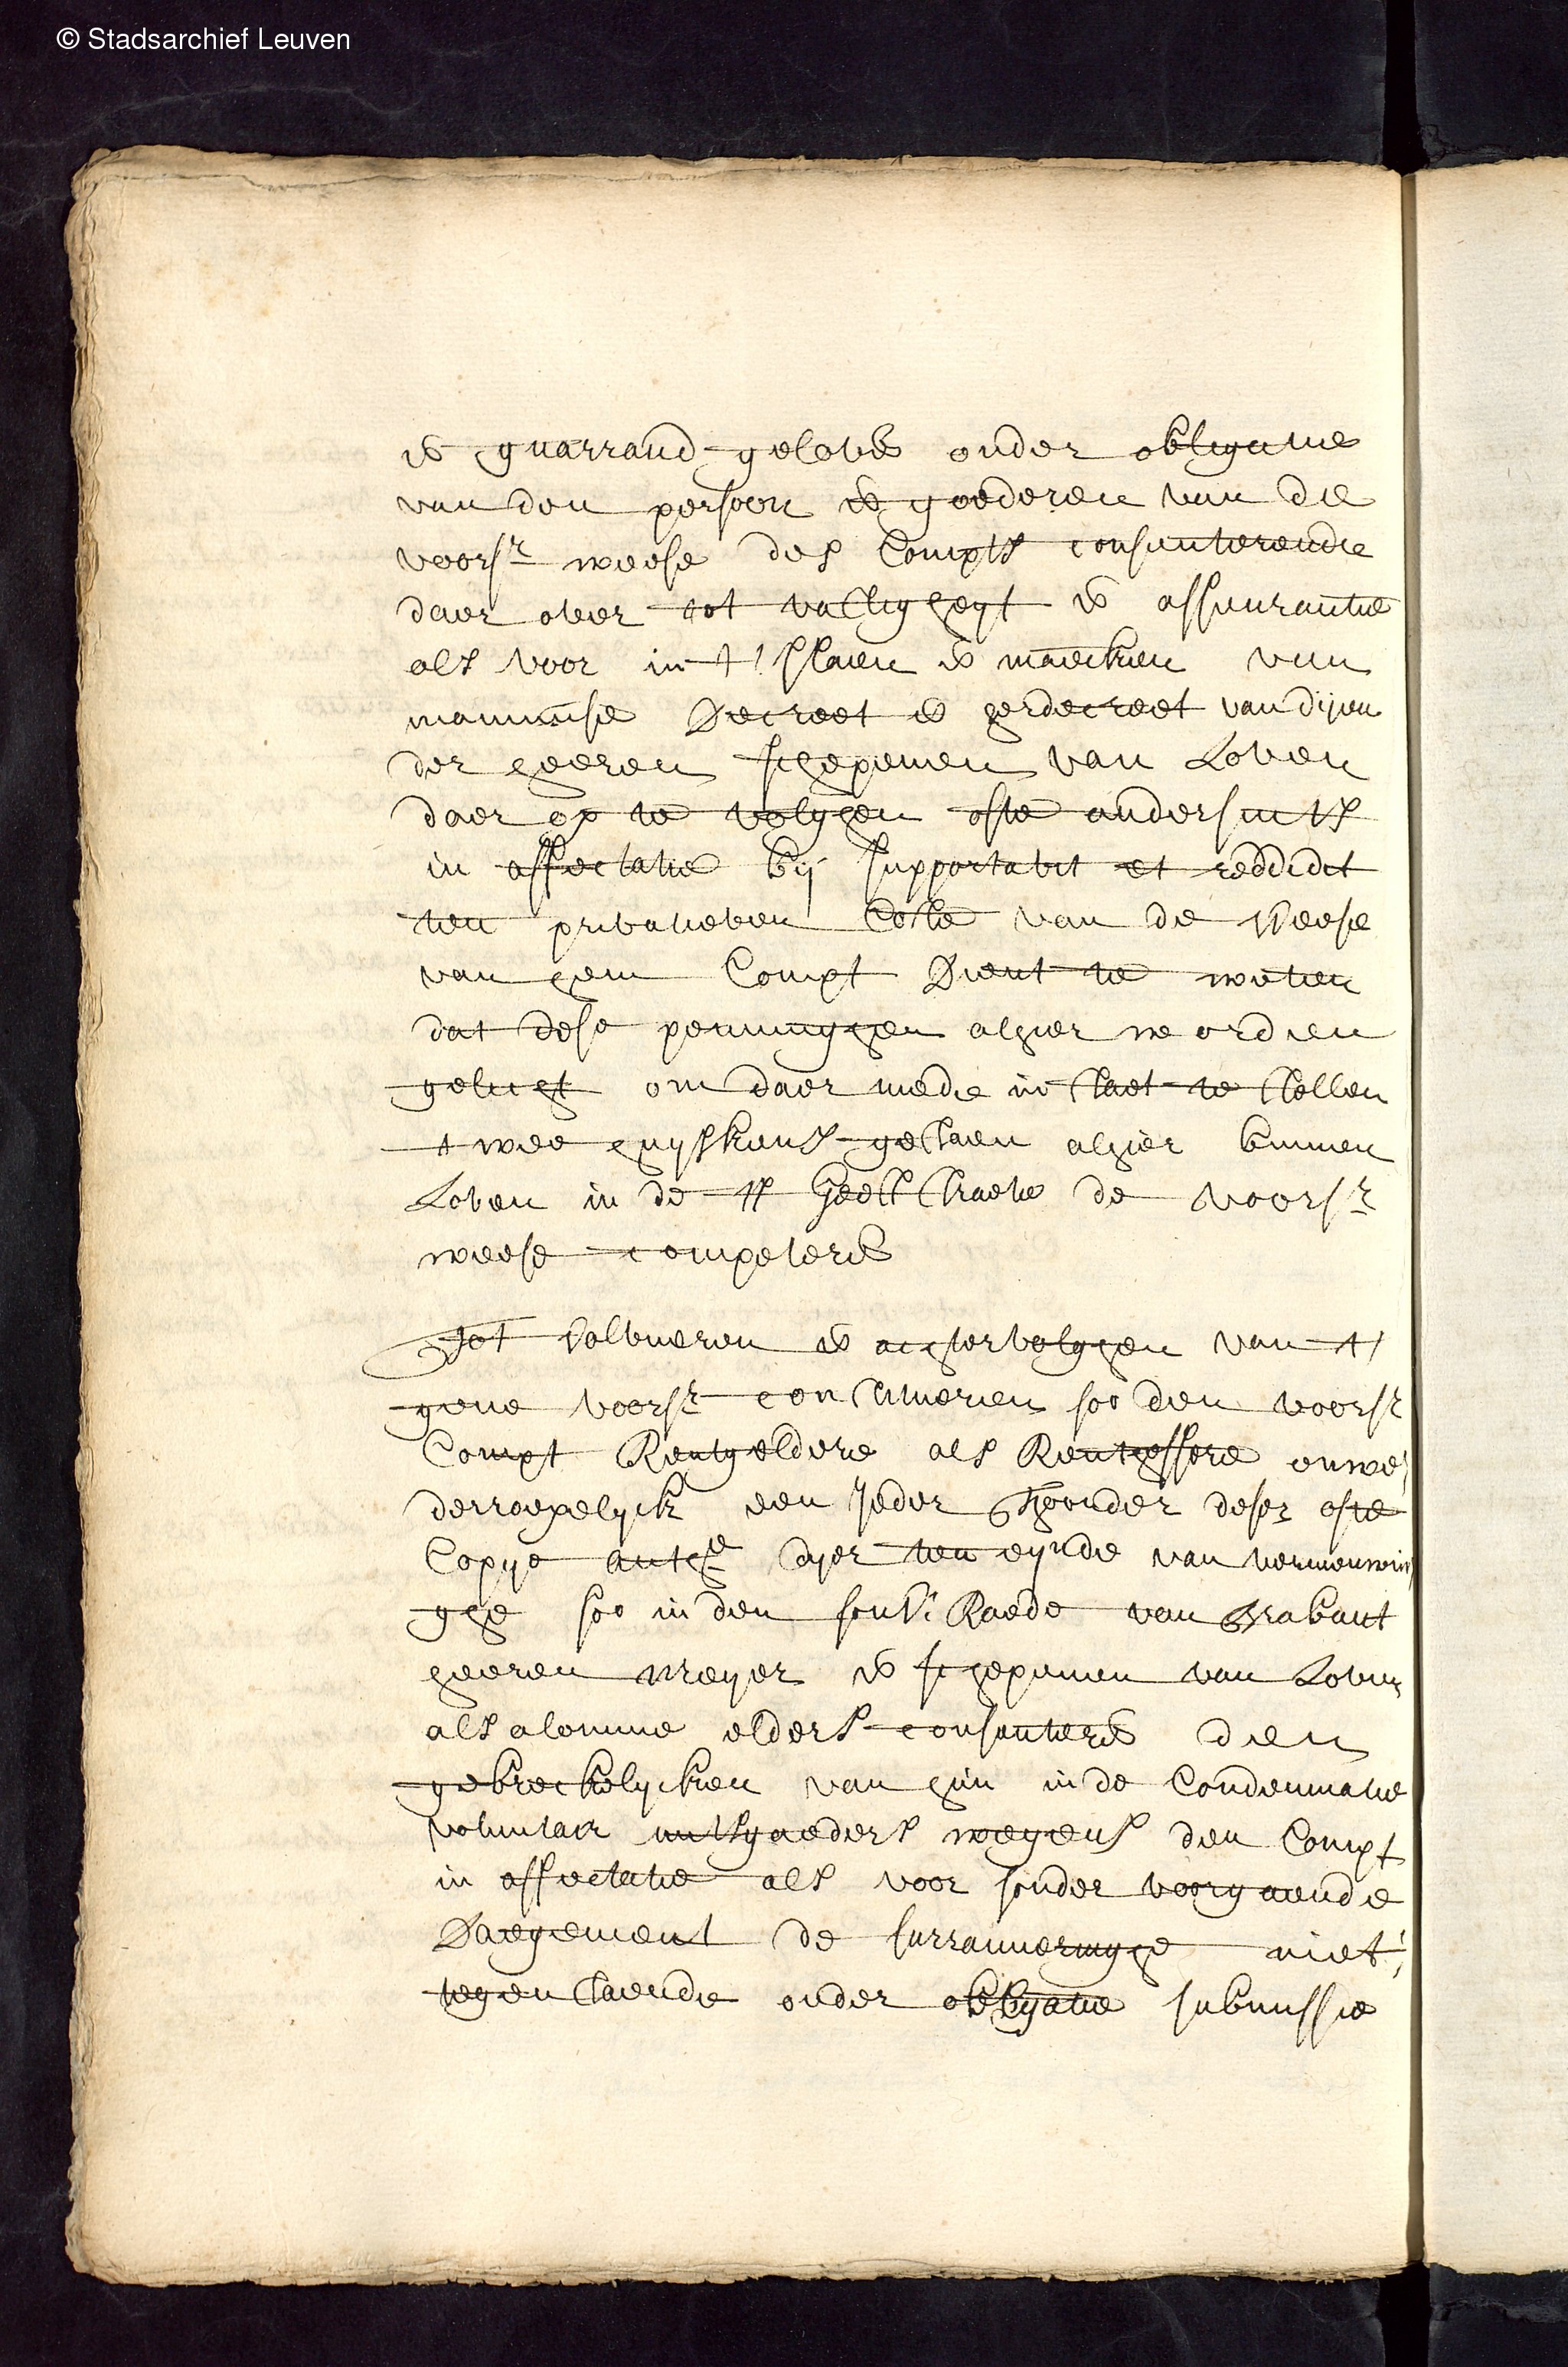 © Stadsarchief Leuven
en guarrand gelovende onder obligatie
van den persoon en goederen van die
voorsr weese des Compts consenterende
daer over tot valligheyt en asseurantie
als voor in 't staen en maecken van
mainmise Decreet en herdecreet van dijen
der heeren schepenen van Loven
daer op te volghen ofte andersints
in affectatie bij supportavit et reddidit
ten privatieven Coste van de weese
van hem Compt Dient te weten
dat dese penninghen alhier worden
gelicht om daer mede in staet te stellen
twee huyskens gestaen alhier binnen
Loven in de st Geest straete de voorsr
weese competerende
Tot volbueren en achtervolghen van 't
gene voorsr constitueren soo den voorsr
Compt Rentgeldere als Rentheffere onwe
derroepelyck een Jeder Thoonder deser ofte
Copye autcque dyer ten eynde van vernieuwin
ghe soo in den souv: Raede van Brabant
heeren Meyer en schepenen van Loven
als alomme elders consenterende den
gebreckelycken van hun in de Condemnatie
voluntair mitsgaeders wegens den Compt
in affectatie als voor sonder voorgaende
Daegement de surranneringhe niet
tegenstaende onder obligatie submissie